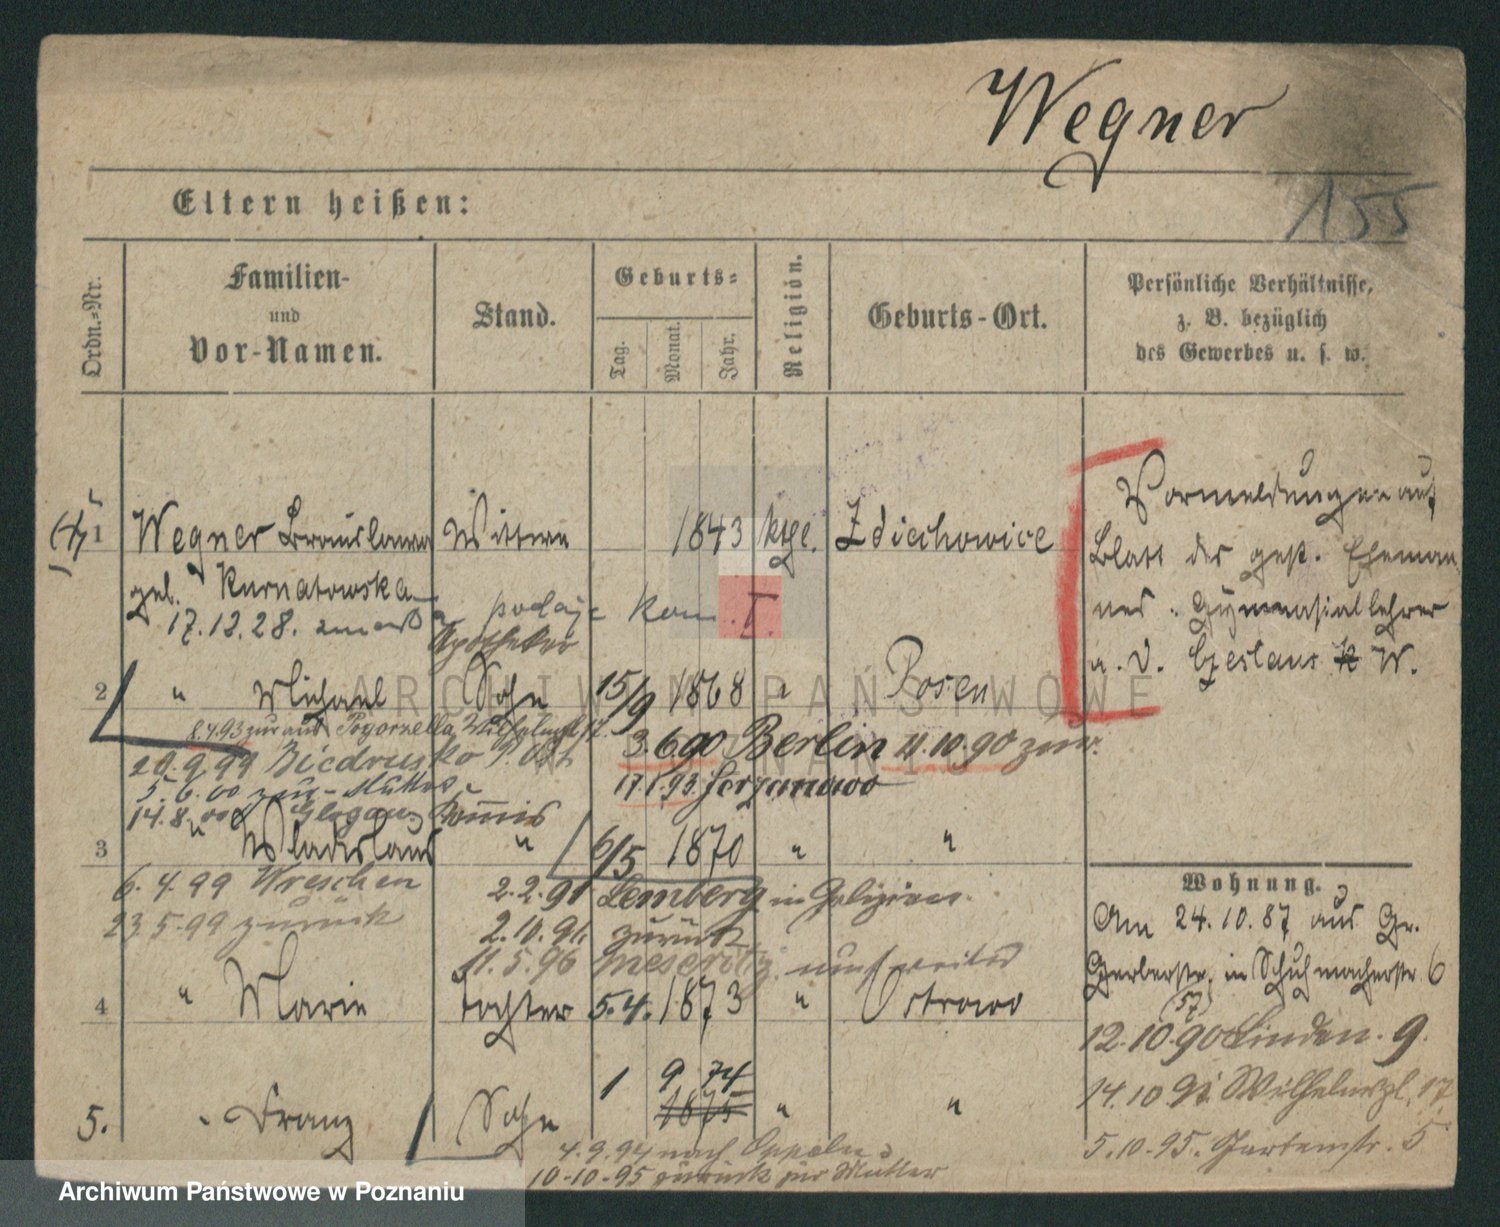 Wegner
155
Eltern heißen:
Ordn.-Nr.
Familien-
und
Vor-Namen.
Stand.
Geburts-
Tag.
Monat.
Jahr.
Religion.
Geburts-Ort.
Persönliche Verhältnisse,
z. B. bezüglich
des Gewerbes u. s. w.
1 Wegner Bronislawa Wittwe 1843 kthl. Zdiechowice
geb. Kurnatowska
17.12.28. podaje kom. I.
Apotheker
2 " Michael Sohn 15/9 1868 " Posen
8.4.93 zur aus Pogorzella, Wilhelmspl. 17.
3.6.90 Berlin 11.10.90 zur.
20.9.99 Biedrusko
17.1.93 Jerzanowo
5.6.00 zur. Mutter
14.8.00 Glogau Commis
3 " Wladislaus " 6/5 1870 " "
6.4.99 Wreschen
23.5.99 zurück
2.2.91 Lemberg in Galizien.
2.10.91. zurück
11.5.96 Meseritz
4 " Marie Tochter 5.4. 1873 " Ostrowo
5. " Franz Sohn 1 9 74 " "
1875
4.9.94 nach Oppeln
10-10-95 zurück zur Mutter
Vormeldungen auf
Blatt des gest. Eheman-
nes. Gymnasiallehrer
a. D. Czeslaus W.
Wohnung.
Am 24.10.87 aus Gr.
Gerberstr. in Schuhmacherstr. 6
(57)
12.10.90 Linden. 9.
14.10.91 Wilhelmspl. 17
5.10.95. Gartenstr. 5
ARCHIWUM PAŃSTWOWE
W POZNANIU
Archiwum Państwowe w Poznaniu